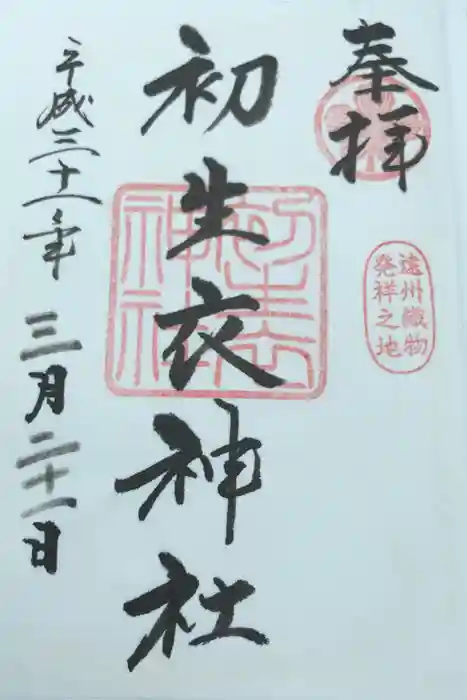 奉拝
遠州織物
発祥之地
初生衣神社
初生衣
神社
平成三十一年三月二十一日